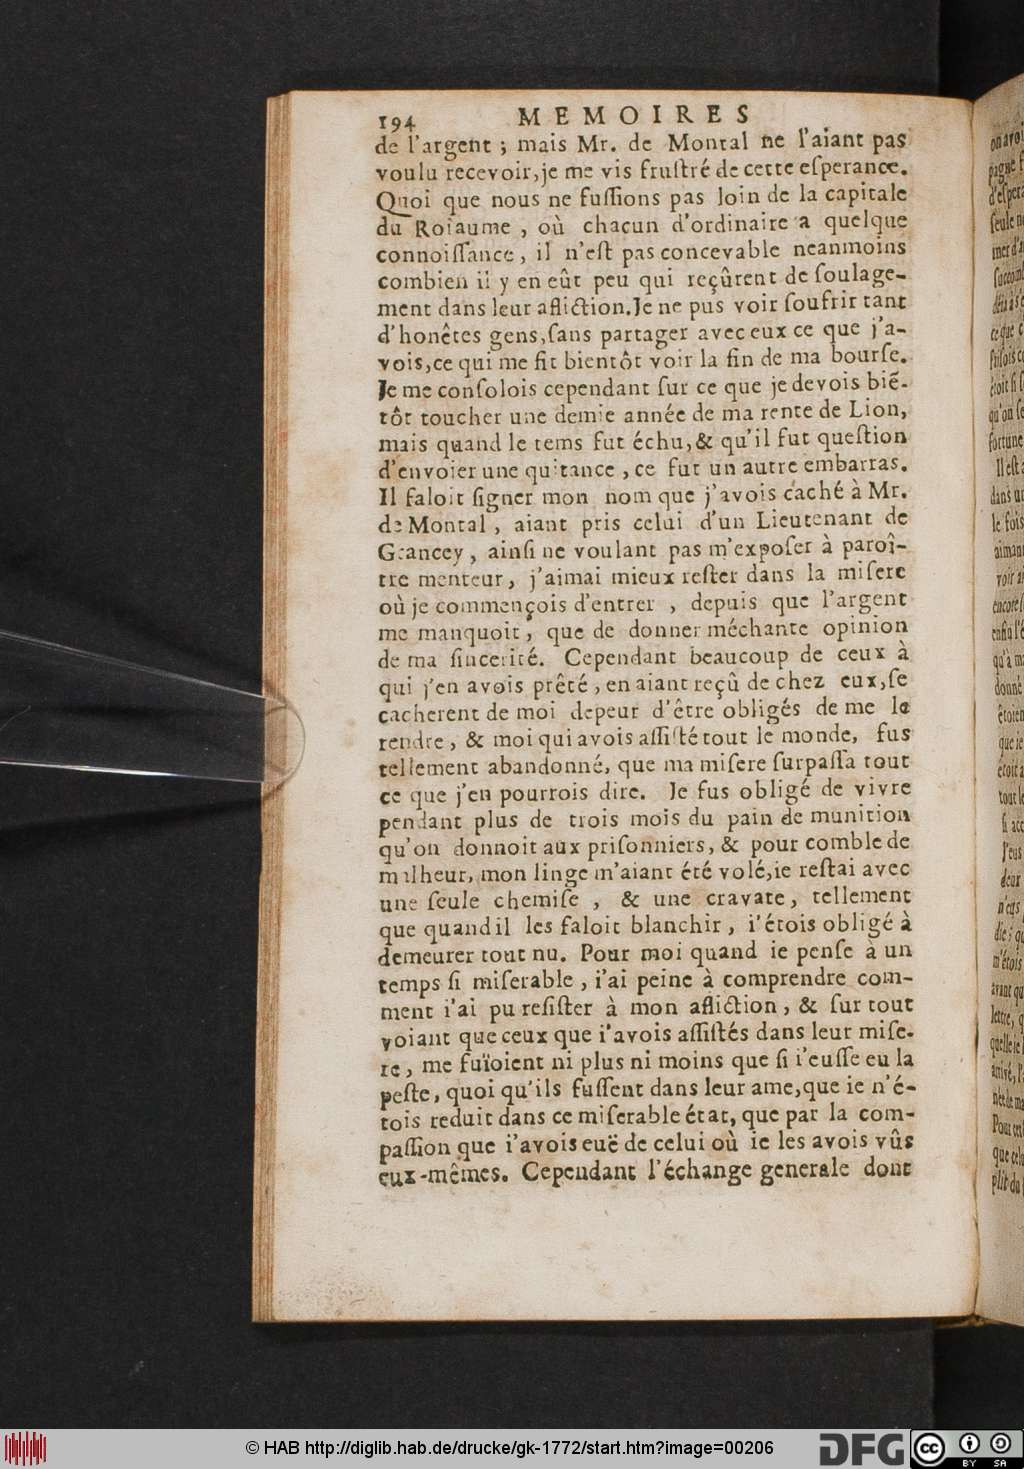 194 MEMOIRES
de l'argent ; mais Mr. de Montal ne l'aiant pas
voulu recevoir, je me vis fruſtré de cette eſperance.
Quoi que nous ne fuſſions pas loin de la capitale
du Roiaume , où chacun d'ordinaire a quelque
connoiſſance, il n'eſt pas concevable neanmoins
combien il y en eût peu qui reçûrent de ſoulage-
ment dans leur afliction. Je ne pus voir ſoufrir tant
d'honêtes gens, ſans partager avec eux ce que j'a-
vois, ce qui me fit bientôt voir la fin de ma bourſe.
Je me conſolois cependant ſur ce que je devois biē-
tôt toucher une demie année de ma rente de Lion,
mais quand le tems fut échu, & qu'il fut queſtion
d'envoier une quitance , ce fut un autre embarras.
Il faloit ſigner mon nom que j'avois caché à Mr.
de Montal , aiant pris celui d'un Lieutenant de
Grancey , ainſi ne voulant pas m'expoſer à paroî-
tre menteur, j'aimai mieux reſter dans la miſere
où je commençois d'entrer , depuis que l'argent
me manquoit, que de donner méchante opinion
de ma ſincerité. Cependant beaucoup de ceux à
qui j'en avois prêté , en aiant reçû de chez eux, ſe
cacherent de moi depeur d'être obligés de me le
rendre , & moi qui avois aſſiſté tout le monde, fus
tellement abandonné, que ma miſere ſurpaſſa tout
ce que j'en pourrois dire. Je fus obligé de vivre
pendant plus de trois mois du pain de munition
qu'on donnoit aux priſonniers, & pour comble de
malheur, mon linge m'aiant été volé, ie reſtai avec
une ſeule chemiſe , & une cravate, tellement
que quand il les faloit blanchir , i'étois obligé à
demeurer tout nu. Pour moi quand ie penſe à un
temps ſi miſerable , i'ai peine à comprendre com-
ment i'ai pu reſiſter à mon afliction , & ſur tout
voiant que ceux que i'avois aſſiſtés dans leur miſe-
re , me fuïoient ni plus ni moins que ſi i'euſſe eu la
peſte, quoi qu'ils fuſſent dans leur ame, que ie n'é-
tois reduit dans ce miſerable état, que par la com-
paſſion que i'avois euë de celui où ie les avois vûs
eux-mêmes. Cependant l'échange generale dont
© HAB http://diglib.hab.de/drucke/gk-1772/start.htm?image=00206
DFG
cc BY SA